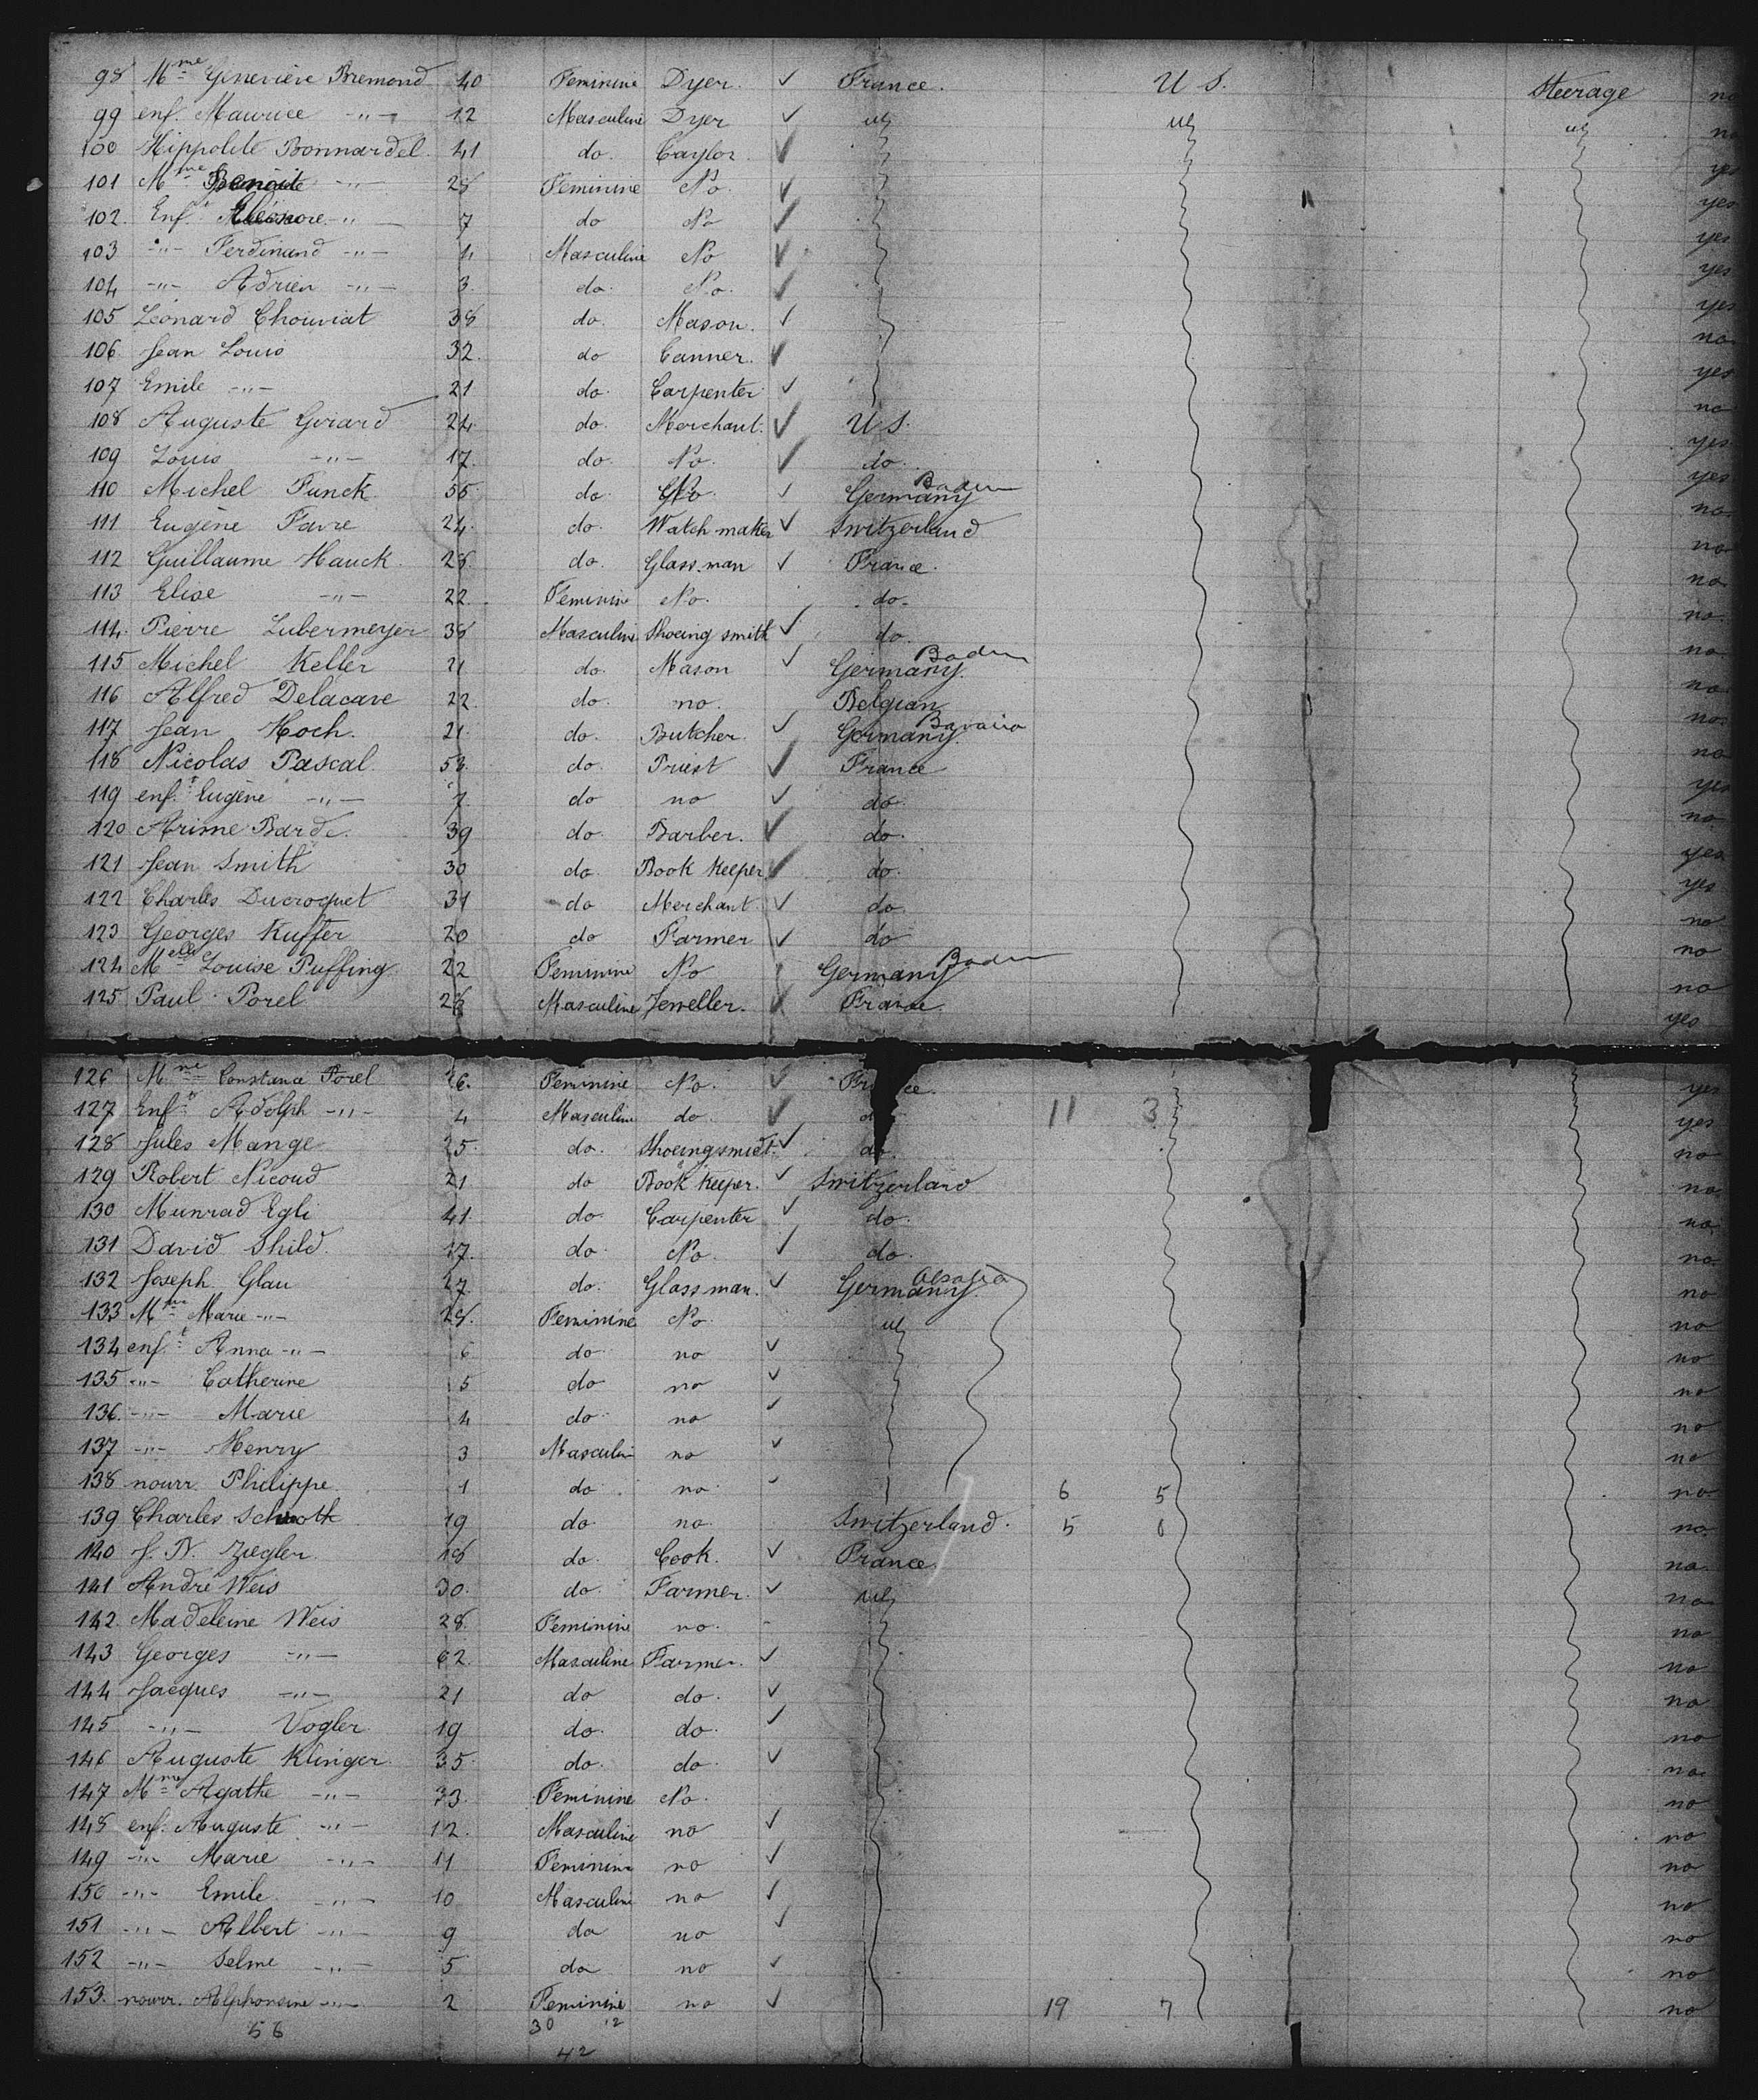 98 Mme Geneviève Bremond 40 Feminine Dyer. ✓ France. U S. Steerage no
99 enf. Maurice -"- 12 Masculine Dyer ✓ no
100 Hippolite Bonnardel 41 do. Caylor ✓ yes
101 Mme Benoite -"- 28 Feminine No. ✓ yes
102. Enft Eléonore -"- 7 do No ✓ yes
103 -"- Ferdinand -"- Masculine No ✓ yes
104 -"- Adrien -"- 3. do. No. ✓ yes
105 Léonard Chouviat 38 do. Mason. ✓ no
106 Jean Louis 32. do Canner. ✓ yes
107 Emile -"- 21 do. Carpenter ✓ no
108 Auguste Girard 24. do. Merchant. ✓ U S. yes
109 Louis -"- 17. do. No. ✓ do. yes
110 Michel Funck 55 do. No. ✓ Germany Baden no.
111 Eugène Favre 24. do. Watch maker ✓ Switzerland no
112 Guillaume Hauck. 28. do. Glass-man ✓ France. no
113 Elise -"- 22. Feminine No. do. no.
114. Pierre Lubermeyer 38 Masculine Shoeing smith ✓ do. no
115 Michel Keller 21 do. Mason ✓ Germany. Baden no
116 Alfred Delacave 22. do. no. Belgian no.
117 Jean Hoch. 21. do. Butcher. ✓ Germany. Bavaria no
118 Nicolas Pascal 53. do. Priest ✓ France yes
119 enft Eugène -"- 7. do no ✓ do. no
120 Arime Bard. 39 do. Barber. ✓ do. yes
121 Jean Smith 30 do. Book Keeper ✓ do. yes
122 Charles Ducrocquet 31 do Merchant ✓ do. no
123 Georges Kuffer 20 do Farmer ✓ do no
124 Melle Louise Puffing 22 Feminine No Germany Baden no
125 Paul Porel 28 Masculine Jeweller. ✓ France. yes
126 Mme Constance Porel 26. Feminine No. ✓ France. yes
127 Enft Adolph -"- 4 Masculine do. ✓ do 11 3 yes
128 Jules Mange 25. do. Shoeingsmidt. ✓ do. no
129 Robert Nicoud 21 do Book keeper. ✓ Switzerland no
130 Munrad Egli 41 do. Carpenter ✓ do. no
131 David Shild. 17. do. No. ✓ do. no
132 Joseph Glau 27. do. Glass man. ✓ Germany. Alsasia no
133 Mme Marie -"- 28. Feminine No. no
134 enft Anna -"- 6 do. no ✓ no
135 -"- Catherine 5 do no ✓ no
136. -"- Marie 4 do. no ✓ no
137 -"- Henry 3 Masculin no ✓ no
138 nourr. Philippe 1 do. no. ✓ 6 5 no
139 Charles Schroth 19 do. no. Switzerland. 5 no.
140 J. N. Ziegler. 18 do. Cook. ✓ France no
141 André Weis 30. do. Farmer. ✓ no
142. Madeleine Weis 28. Feminine no. no
143 Georges -"- 62. Masculine Farmer. ✓ no
144 Jacques -"- 21 do do. ✓ no
145 -"- Vogler 19 do. do. ✓ no
146 Auguste Klinger. 35. do. do. ✓ no.
147 Mme Agathe -"- 33. Feminine No. no
148 enf. Auguste -"- 12. Masculine no ✓ no
149 -"- Marie -"- 11 Feminine no ✓ no
150 -"- Emile -"- 10 Masculine no ✓ no
151 -"- Albert -"- 9 do no ✓ no
152 -"- Selme -"- 5 do no ✓ no
153. nourr. Alphonsine -"- 2 Feminine no ✓ 19 7 no
56 30 12
42